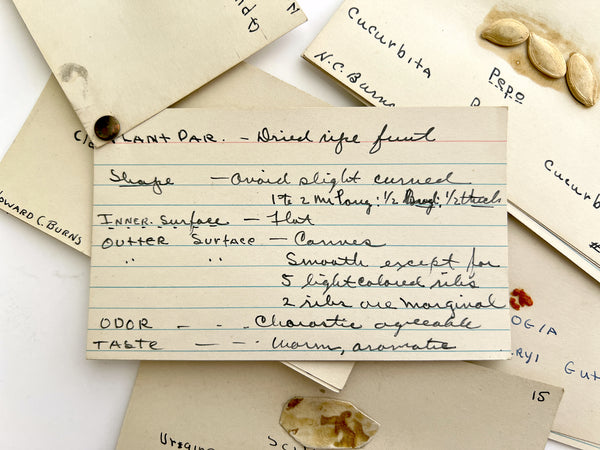 Cucurbita
Pepo
N.C. Burns
Cucurb
PLANT PAR. - Dried ripe fruit
Shape - Ovoid slight curved
1 to 2 m long: 1/2 Broad: 1/2 thick
INNER. Surface - flat
OUTTER Surface - Convex
" " Smooth except for
5 light colored ribs
2 ribs are marginal
ODOR - - - agreeable
TASTE - - - Warm, aromatic
HOWARD C. BURNS
OGIA
RYI GUT
15